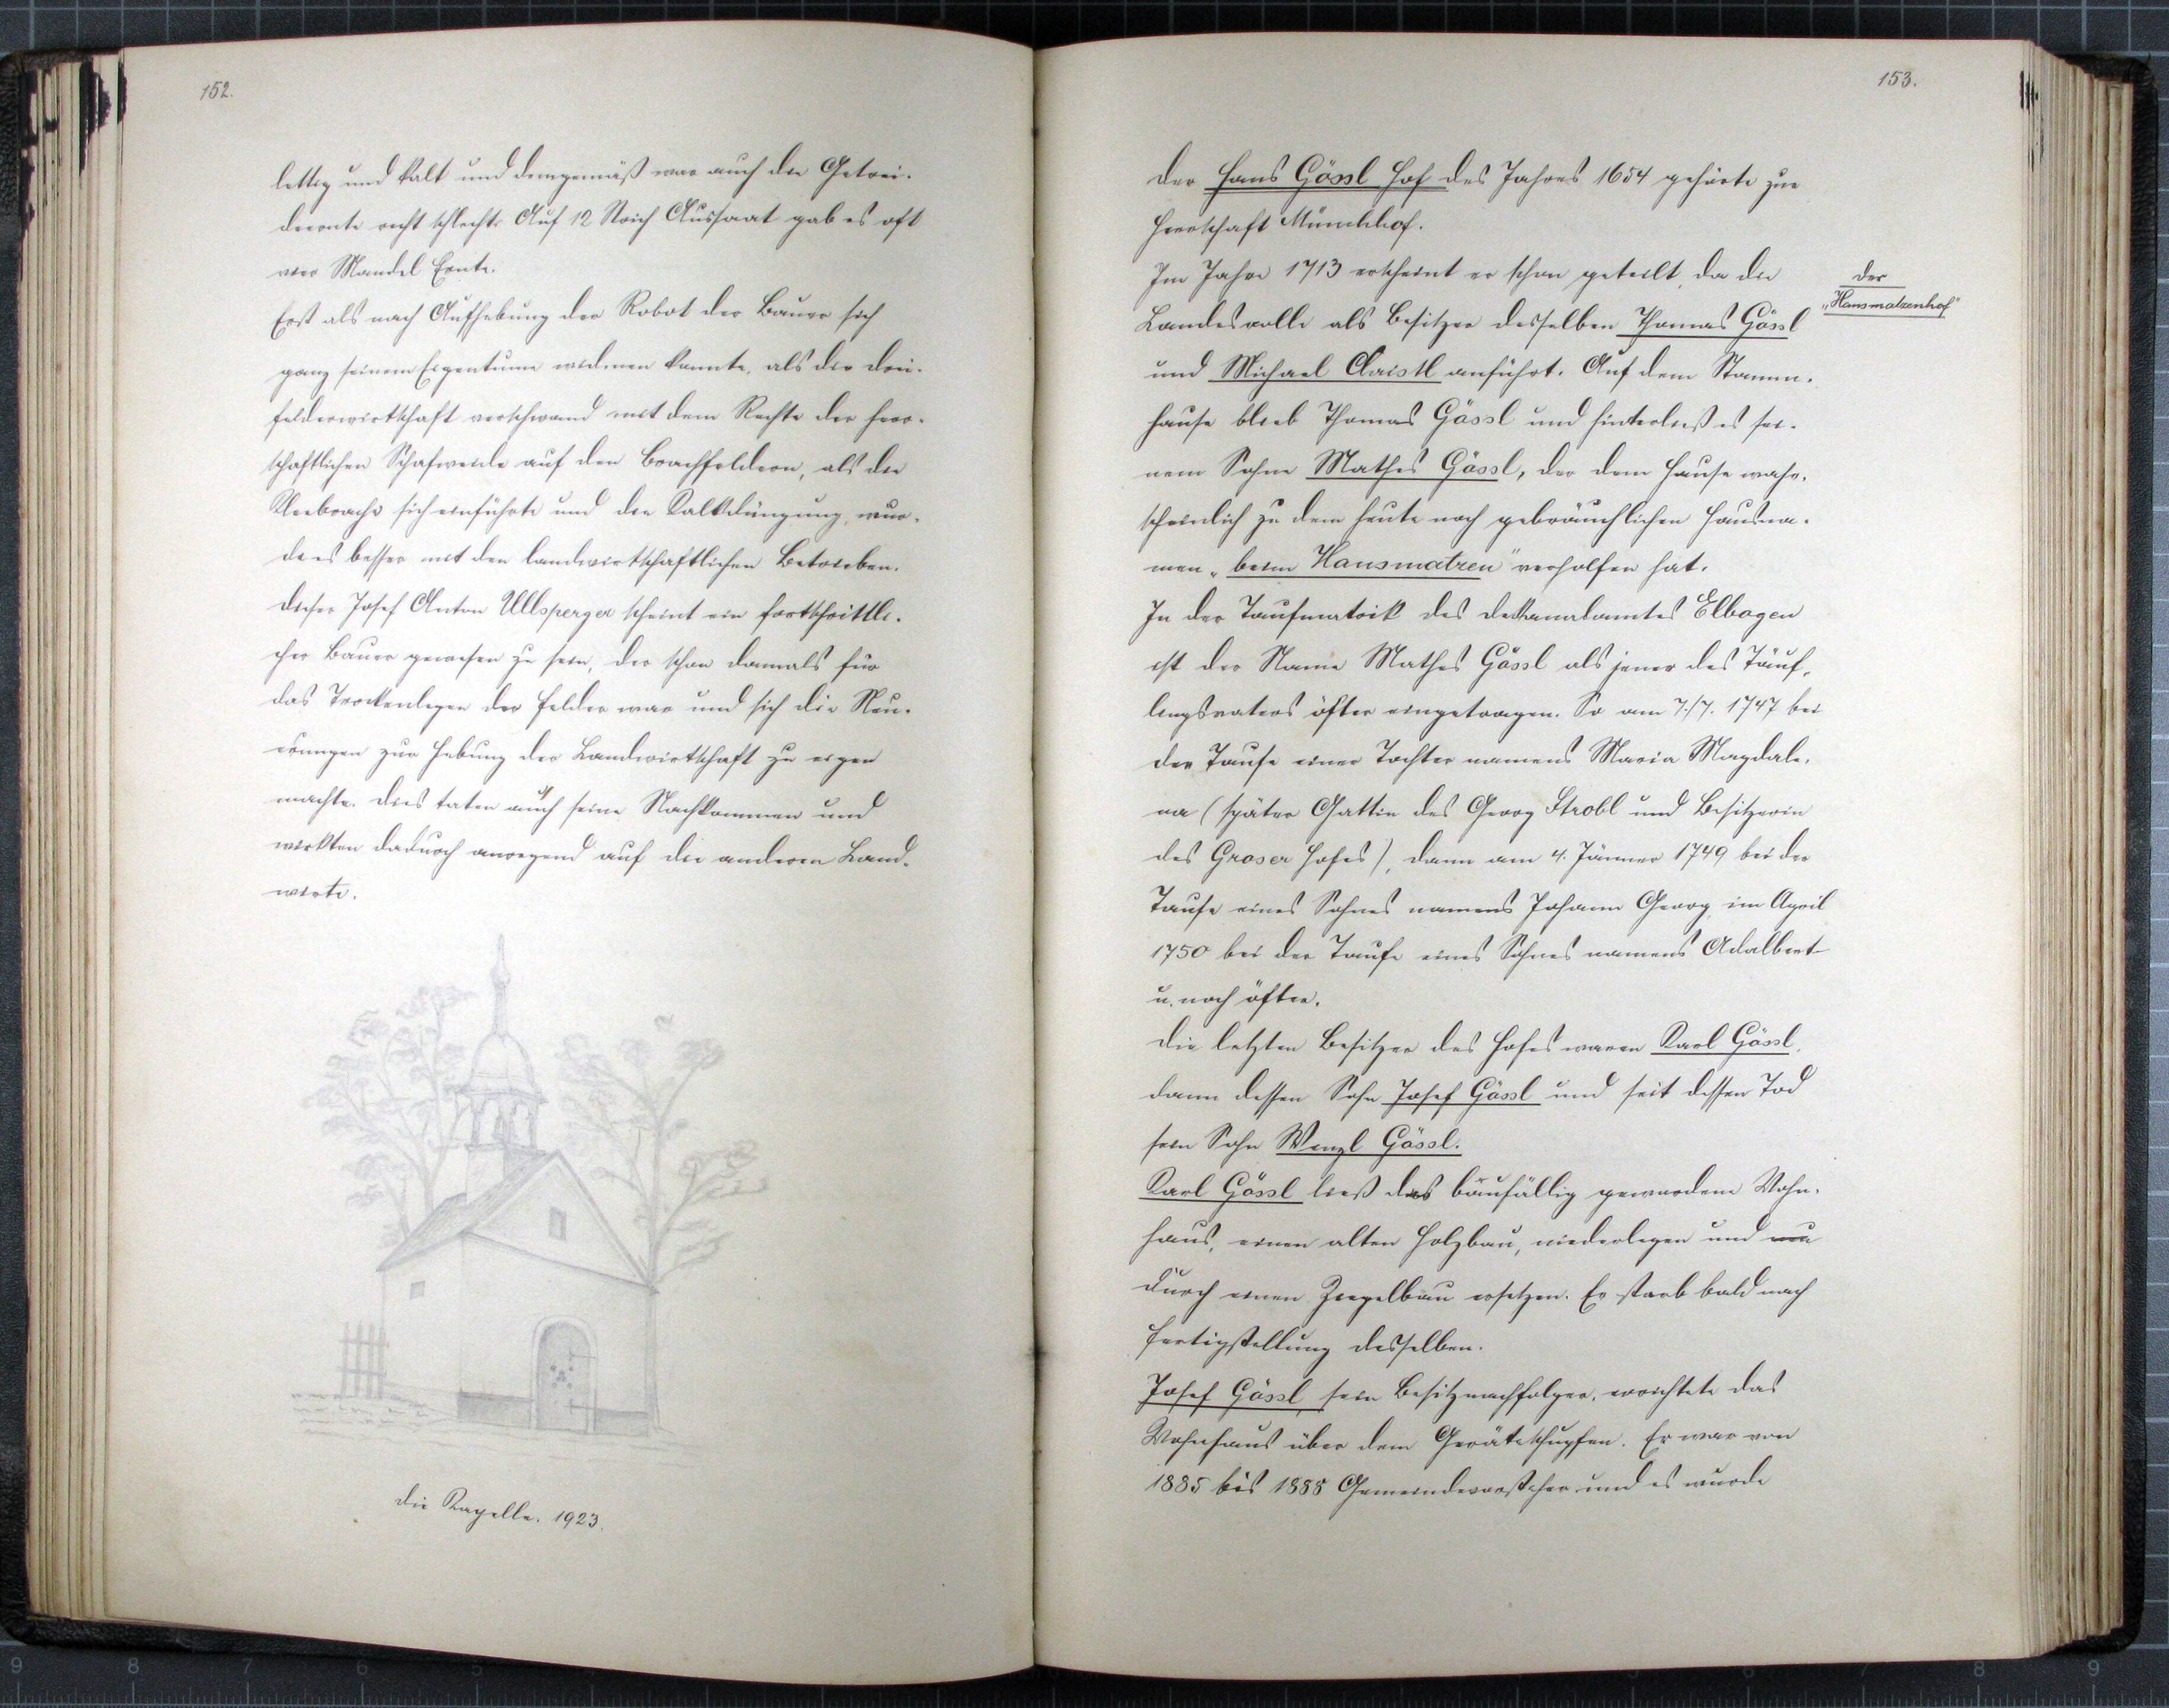 152.
lettig und kalt und demgemäß war auch die Getrei-
deernte recht schlecht. Auf 12 Strich Aussaat gab es oft
vier Mandel Ernte.
Erst als nach Aufhebung der Robot der Bauer sich
ganz seinem Eigentume widmen konnte, als die Drei-
felderwirtschaft verschwand mit dem Rechte der herr-
schaftlichen Schafweide auf den Brachfeldern, als die
Kleebrache sich einführte und die Kalkdüngung, wur-
de es besser mit den landwirtschaftlichen Betrieben.
Dieser Josef Anton Ullsperger scheint ein fortschrittli-
cher Bauer gewesen zu sein, der schon damals für
das Trockenlegen der Felder war und sich die Neu-
erungen zur Hebung der Landwirtschaft zu eigen
machte. Dies taten auch seine Nachkommen und
wirkten dadurch anregend auf die anderen Land-
wirte.
Die Kapelle. 1923.
153.
Der Hans Gössl Hof des Jahres 1654 gehörte zur
Herrschaft Münchhof.
Im Jahre 1713 erscheint er schon geteilt, da die
Landesrolle als Besitzer desselben Thomas Gössl
und Michael Christl anführt. Auf dem Stamm-
hause blieb Thomas Gössl und hinterließ es sei-
nem Sohne Mathes Gössl, der dem Hause wahr-
scheinlich zu dem heute noch gebräuchlichen Hausna-
men „beim Hansmatzen" verholfen hat.
In der Taufmatrik des Dekanalamtes Elbogen
ist der Name Mathes Gössl als jener des Täuf-
lingsvaters öfter eingetragen. So am 7./7. 1747 bei
der Taufe einer Tochter namens Maria Magdale-
na (später Gattin des Georg Strobl und Besitzerin
des Graser Hofes), dann am 4. Jänner 1749 bei der
Taufe eines Sohnes namens Johann Georg, im April
1750 bei der Taufe eines Sohnes namens Adalbert
u. noch öfter.
Die letzten Besitzer des Hofes waren Karl Gössl,
dann dessen Sohn Josef Gössl und seit dessen Tod
sein Sohn Wenzl Gössl.
Karl Gössl ließ das baufällig gewordene Wohn-
haus, einen alten Holzbau, niederlegen und
durch einen Ziegelbau ersetzen. Er starb bald nach
Fertigstellung desselben.
Josef Gössl, sein Besitznachfolger, errichtete das
Wohnhaus über dem Geräteschupfen. Er war von
1885 bis 1888 Gemeindevorsteher und es wurde
Der
„Hansmatzenhof"